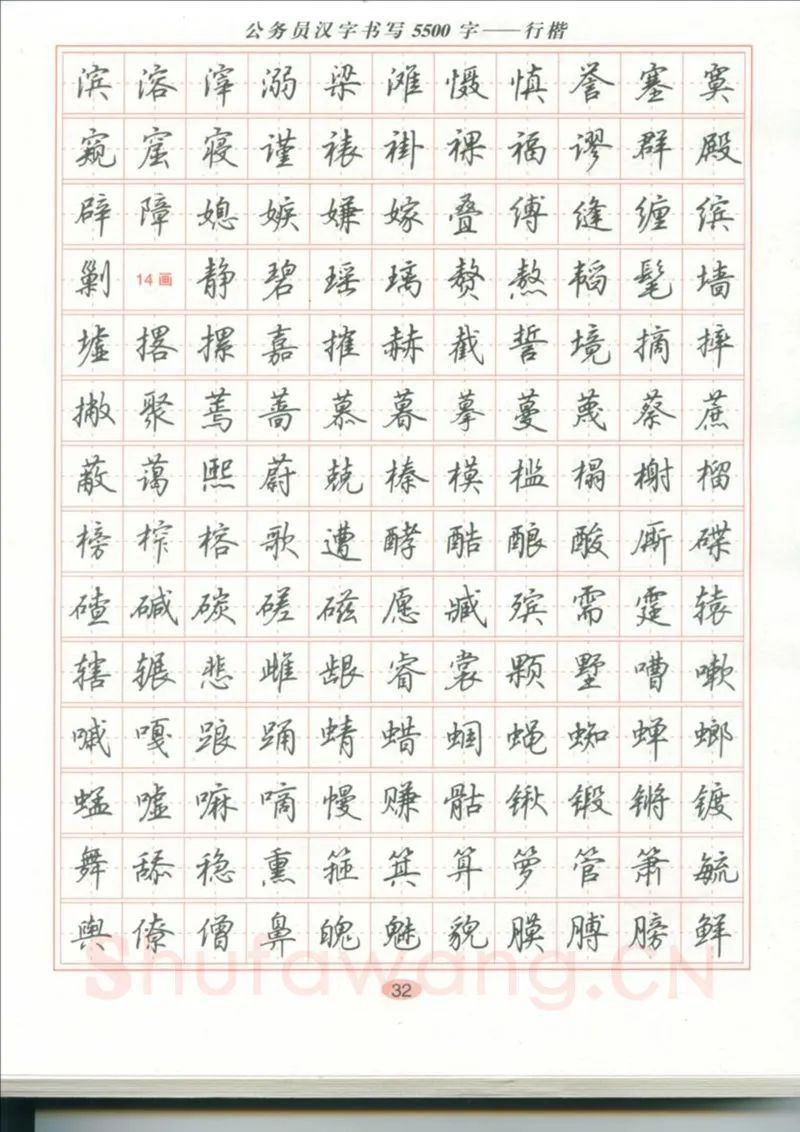 公务员汉字书写5500字——行楷
滨溶滓溺梁滩慑慎誉塞寞
窥窟寝谨裱褂裸福谬群殿
辟障媳嫉嫌嫁叠缚缝缠缤
剿14画静碧瑶璃赘熬韬髦墙
墟撂摞嘉摧赫截誓境摘摔
撇聚蔫蔷慕暮摹蔓蔑蔡蔗
蔽蔼熙蔚兢榛模槛榻榭榴
榜榨榕歌遭酵酷酿酸厮碟
碴碱碳磋磁愿臧殡需霆辕
辖辗悲雌龈睿裳颗墅嘈嗽
嘁嘎踉踊蜻蜡蝈蝇蜘蝉螂
蜢嘘嘛嘀慢赚骷锹锻锵镀
舞舔稳熏箍箕算箩管箫毓
舆僚僧鼻魄魅貌膜膊膀鲜
Shufawang.CN
32